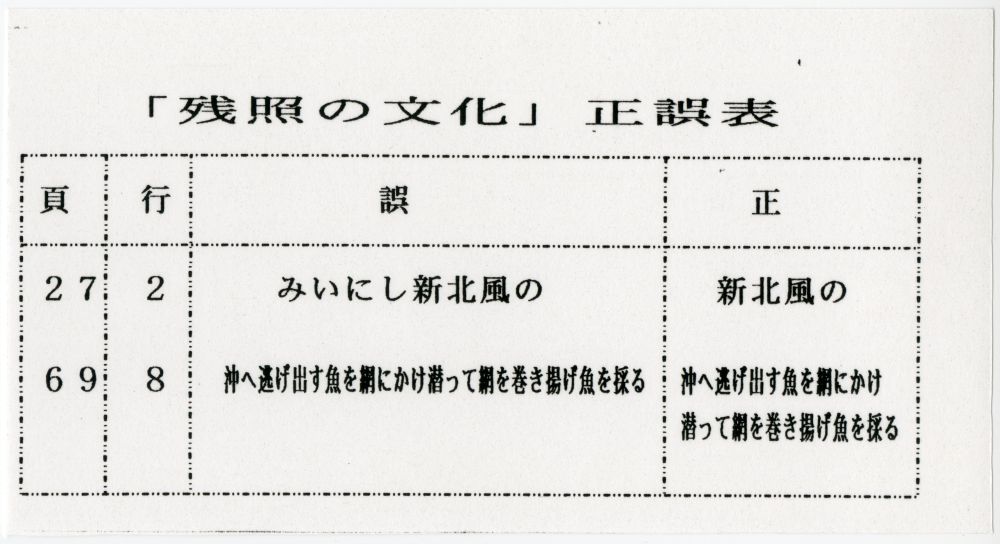 「残照の文化」 正誤表
頁 行 誤 正
27 2 みいにし新北風の 新北風の
69 8 沖へ逃げ出す魚を網にかけ潜って網を巻き揚げ魚を採る 沖へ逃げ出す魚を網にかけ
潜って網を巻き揚げ魚を採る